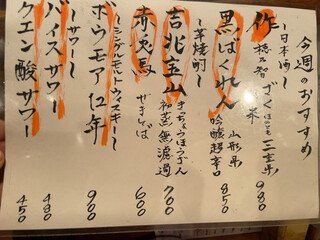 今週のおすすめ
〜日本酒〜
作 穂乃智 ざくほのとも 三重県 980
黒ばくれん 吟醸超辛口 山形県 850
〜芋焼酎〜
吉兆宝山 きっちょうほうざん 初蒸無濾過 700
赤兎馬 せきとば 600
〜シングルモルトウィスキー〜
ボウモア 12年 900
〜サワー〜
バイスサワー 480
クエン酸サワー 450